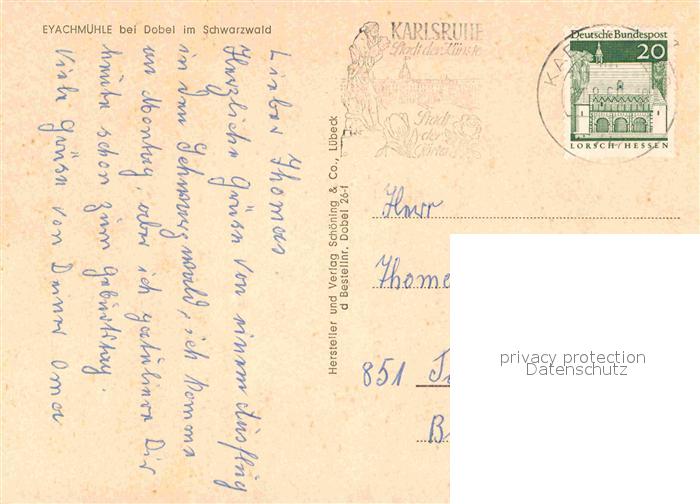 EYACHMÜHLE bei Dobel im Schwarzwald
Lieber Thomas.
Herzliche Grüße von einem Ausflug
in den Schwarzwald, ich komme
am Montag, aber ich gratuliere Dir
heute schon zum Geburtstag.
Viele Grüße von Deiner Oma
Hersteller und Verlag Schöning & Co., Lübeck
d Bestellnr. Dobel 26-f
KARLSRUHE
Stadt der Künste
Stadt
der
Gärten
Deutsche Bundespost
20
LORSCH/HESSEN
Herr
Thoma
851
privacy protection
Datenschutz